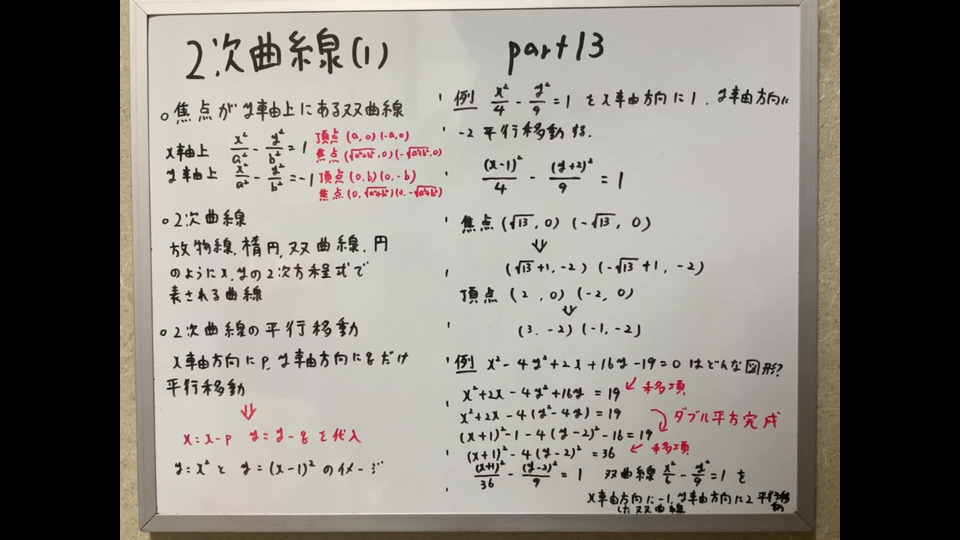 2次曲線(1)
part13
○焦点がy軸上にある双曲線
x軸上 x²/a² - y²/b² = 1 頂点(a,0)(-a,0)
焦点(√a²+b²,0)(-√a²+b²,0)
y軸上 x²/a² - y²/b² = -1 頂点(0,b)(0,-b)
焦点(0,√a²+b²)(0,-√a²+b²)
○2次曲線
放物線,楕円,双曲線,円
のようにx,yの2次方程式で
表される曲線
○2次曲線の平行移動
x軸方向にp,y軸方向にqだけ
平行移動
⇓
x=x-p y=y-qを代入
y=x²とy=(x-1)²のイメージ
例 x²/4 - y²/9 = 1 をx軸方向に1,y軸方向に
-2平行移動する.
(x-1)²/4 - (y+2)²/9 = 1
焦点(√13,0)(-√13,0)
⇓
(√13+1,-2)(-√13+1,-2)
頂点(2,0)(-2,0)
⇓
(3,-2)(-1,-2)
例 x²-4y²+2x+16y-19=0はどんな図形?
x²+2x-4y²+16y=19 ↙移項
x²+2x-4(y²-4y)=19
ダブル平方完成
(x+1)²-1-4(y-2)²-16=19
(x+1)²-4(y-2)²=36 ←移項
(x+1)²/36 - (y-2)²/9 = 1 双曲線 x²/6 - y²/9 = 1 を
x軸方向に-1,y軸方向に2平行移動
した双曲線